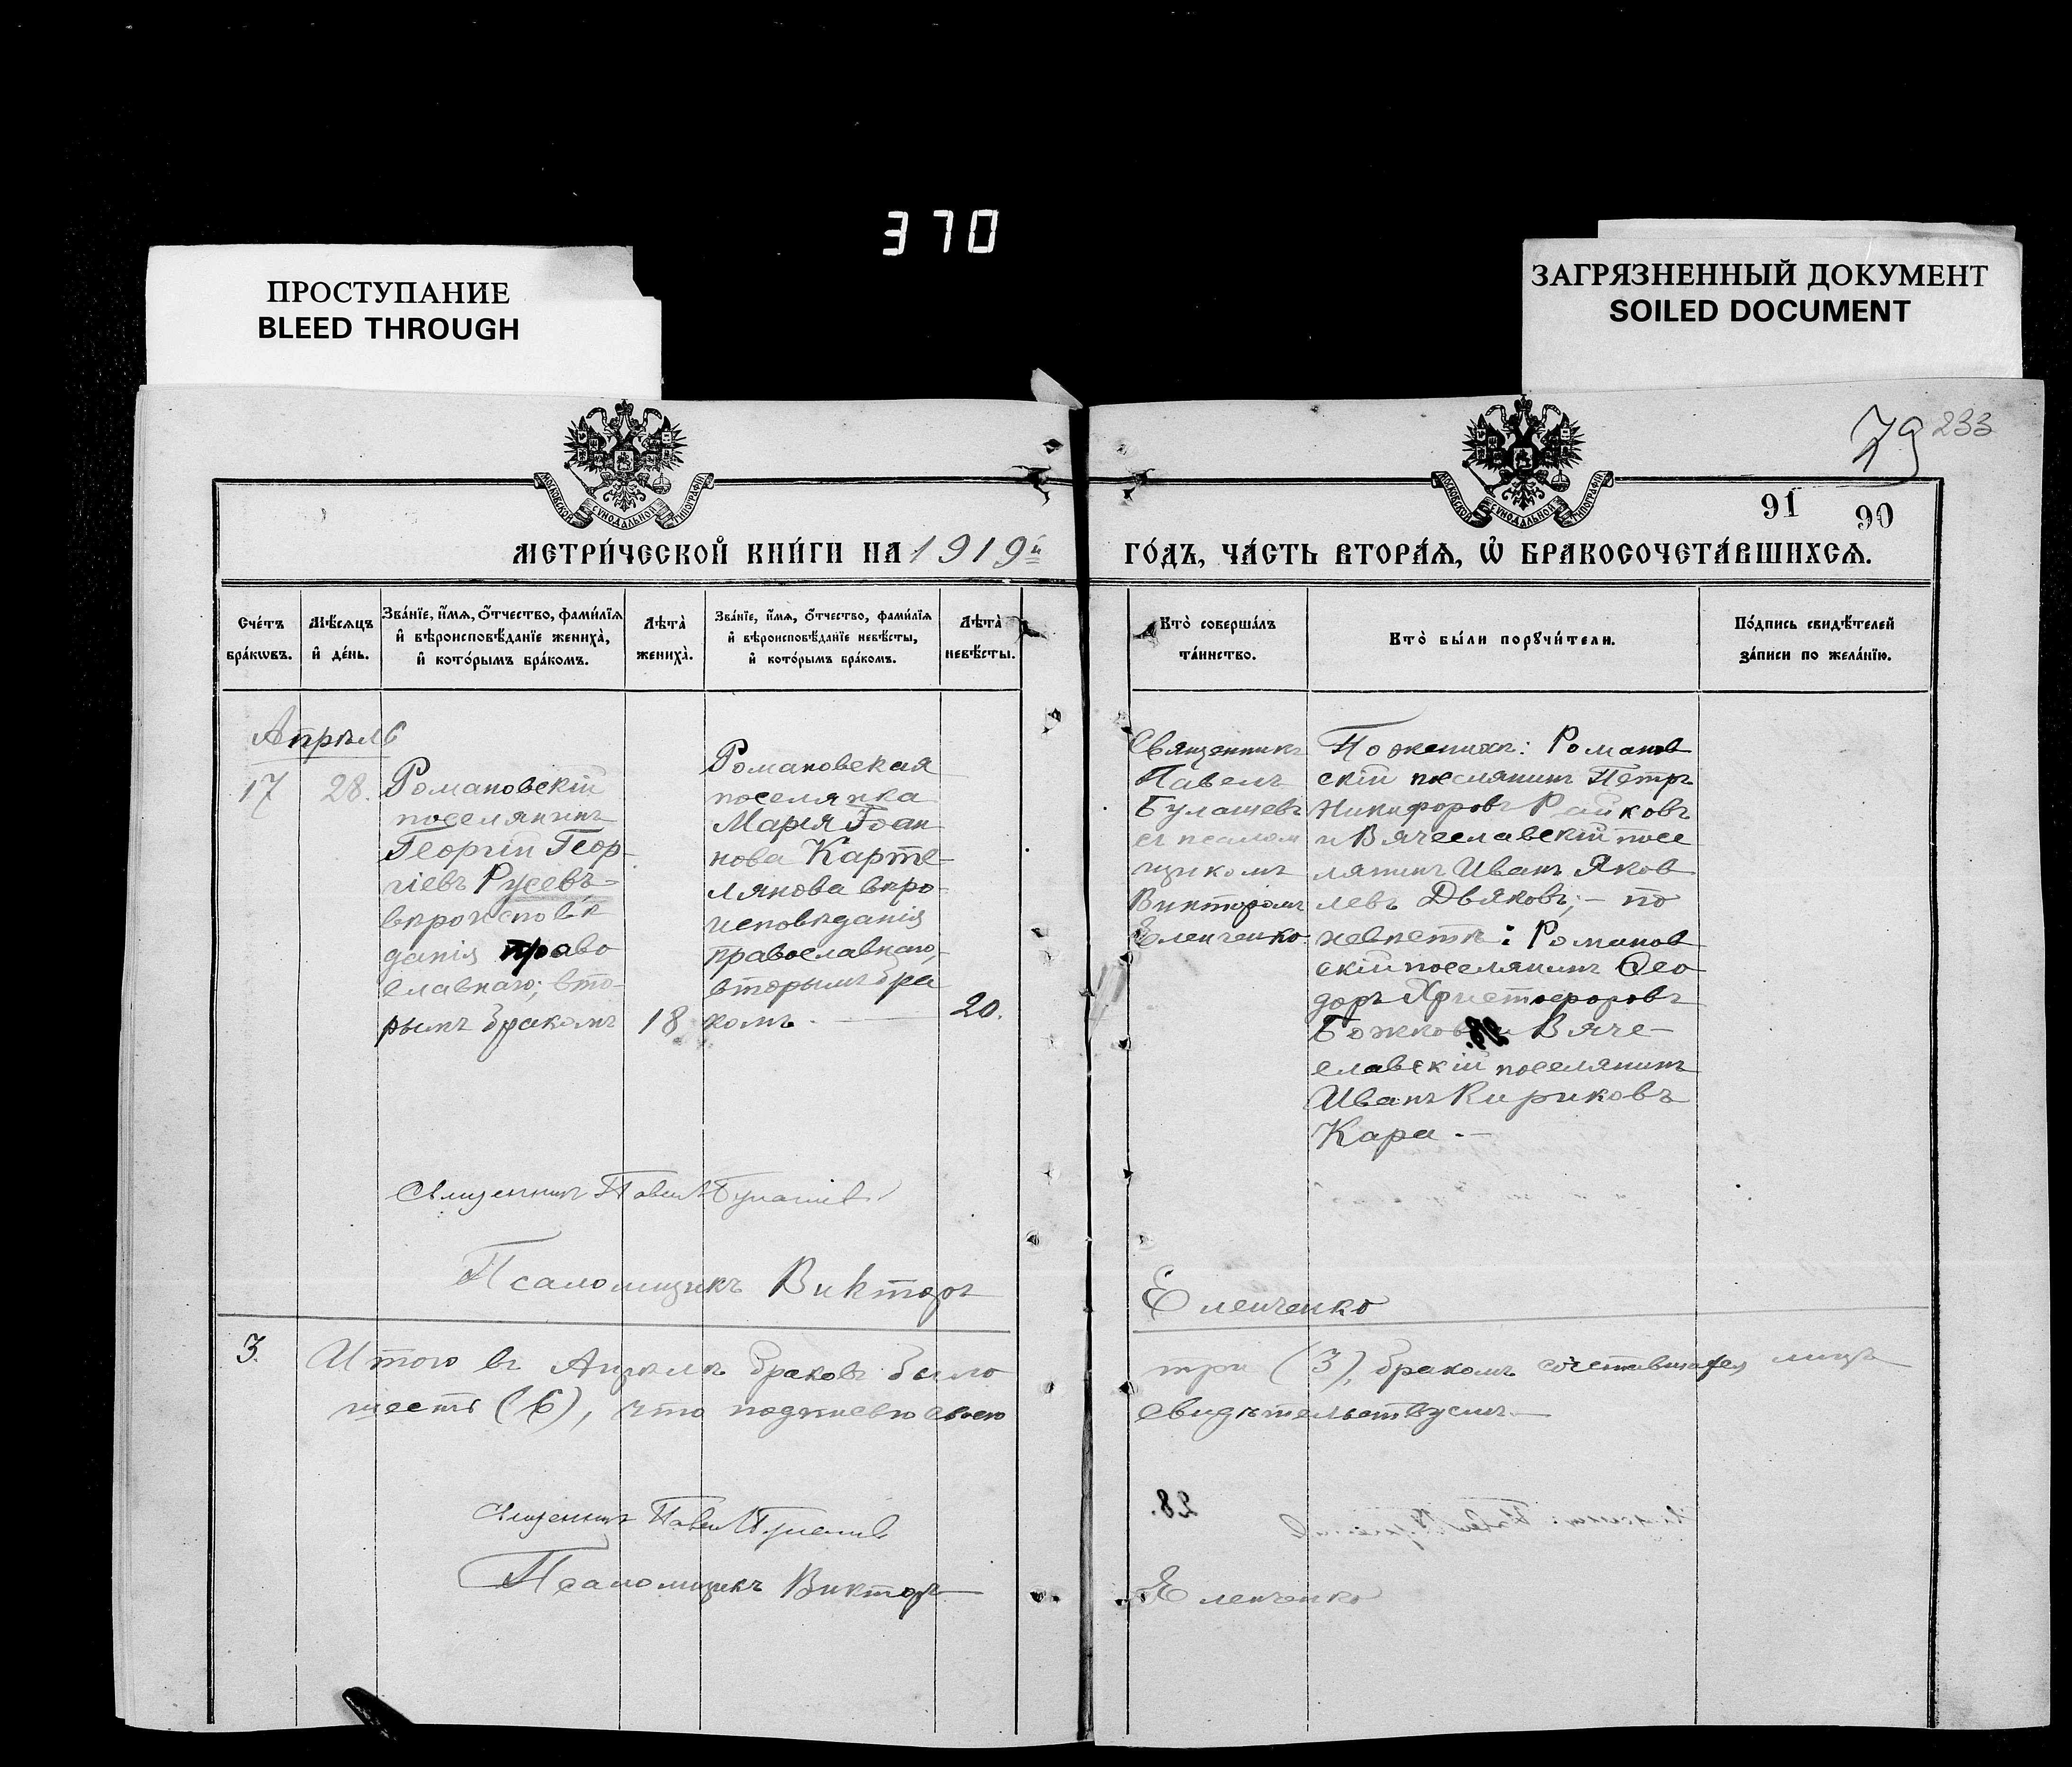 370
ПРОСТУПАНИЕ
BLEED THROUGH
ЗАГРЯЗНЕННЫЙ ДОКУМЕНТ
SOILED DOCUMENT
79 233
91 90
МОСКОВСКОЙ СѴНОДАЛЬНОЙ ТИПОГРАФІИ
МОСКОВСКОЙ СѴНОДАЛЬНОЙ ТИПОГРАФІИ
МЕТРИ́ЧЕСКОЙ КНИ́ГИ НА 1919й
ГО́ДЪ, ЧА́СТЬ ВТОРА́Ѧ, Ѡ҆ БРАКОСОЧЕТА́ВШИХСѦ.
Сче́тъ
бра́кѡвъ.
Мѣ́сяцъ
и҆ де́нь.
Зва́нїе, и҆́мя, ѻ҆́тчество, фами́лїя
и҆ вѣроисповѣ́данїе жениха̀,
и҆ кото́рымъ бра́комъ.
Лѣта̀
жениха̀.
Зва́нїе, и҆́мя, ѻ҆́тчество, фами́лїя
и҆ вѣроисповѣ́данїе невѣ́сты,
и҆ кото́рымъ бра́комъ.
Лѣта̀
невѣ́сты.
Кто̀ соверша́лъ
та́инство.
Кто̀ бы́ли порꙋчи́тели.
По́дпись свидѣ́телей
за́писи по жела́нїю.
Апрѣль
17
28.
Романовскій
поселянинъ
Георгій Геор-
гіевъ Русевъ
вѣроисповѣ-
данія право
славнаго; вто-
рымъ бракомъ
18
Романовская
поселянка
Марія Іоан
нова Карте-
лянова вѣро-
исповѣданія
православнаго,
вторымъ бра
комъ.
20.
Священникъ
Павелъ
Булашевъ
съ псалом
щикомъ
Викторомъ
Еленченко.
По женихѣ: Романов
скій поселянинъ Петръ
Никифоровъ Райковъ
и Вячеславскій посе
лянинъ Иванъ Яков
левъ Дьяковъ; – по
невѣстѣ: Романов
скій поселянинъ Ѳео
доръ Христофоровъ
Божковъ и Вяче-
славскій поселянинъ
Иванъ Кириковъ
Кара. –
Священникъ Павелъ Булашевъ
Псаломщикъ Викторъ
Еленченко
3.
Итого въ Апрѣлѣ браковъ было
три (3), бракомъ сочетавшихся лицъ
шесть (6), что подписью своею
свидѣтельствуемъ. –
Священникъ Павелъ Булашевъ
28.
Псаломщикъ Викторъ
Еленченко